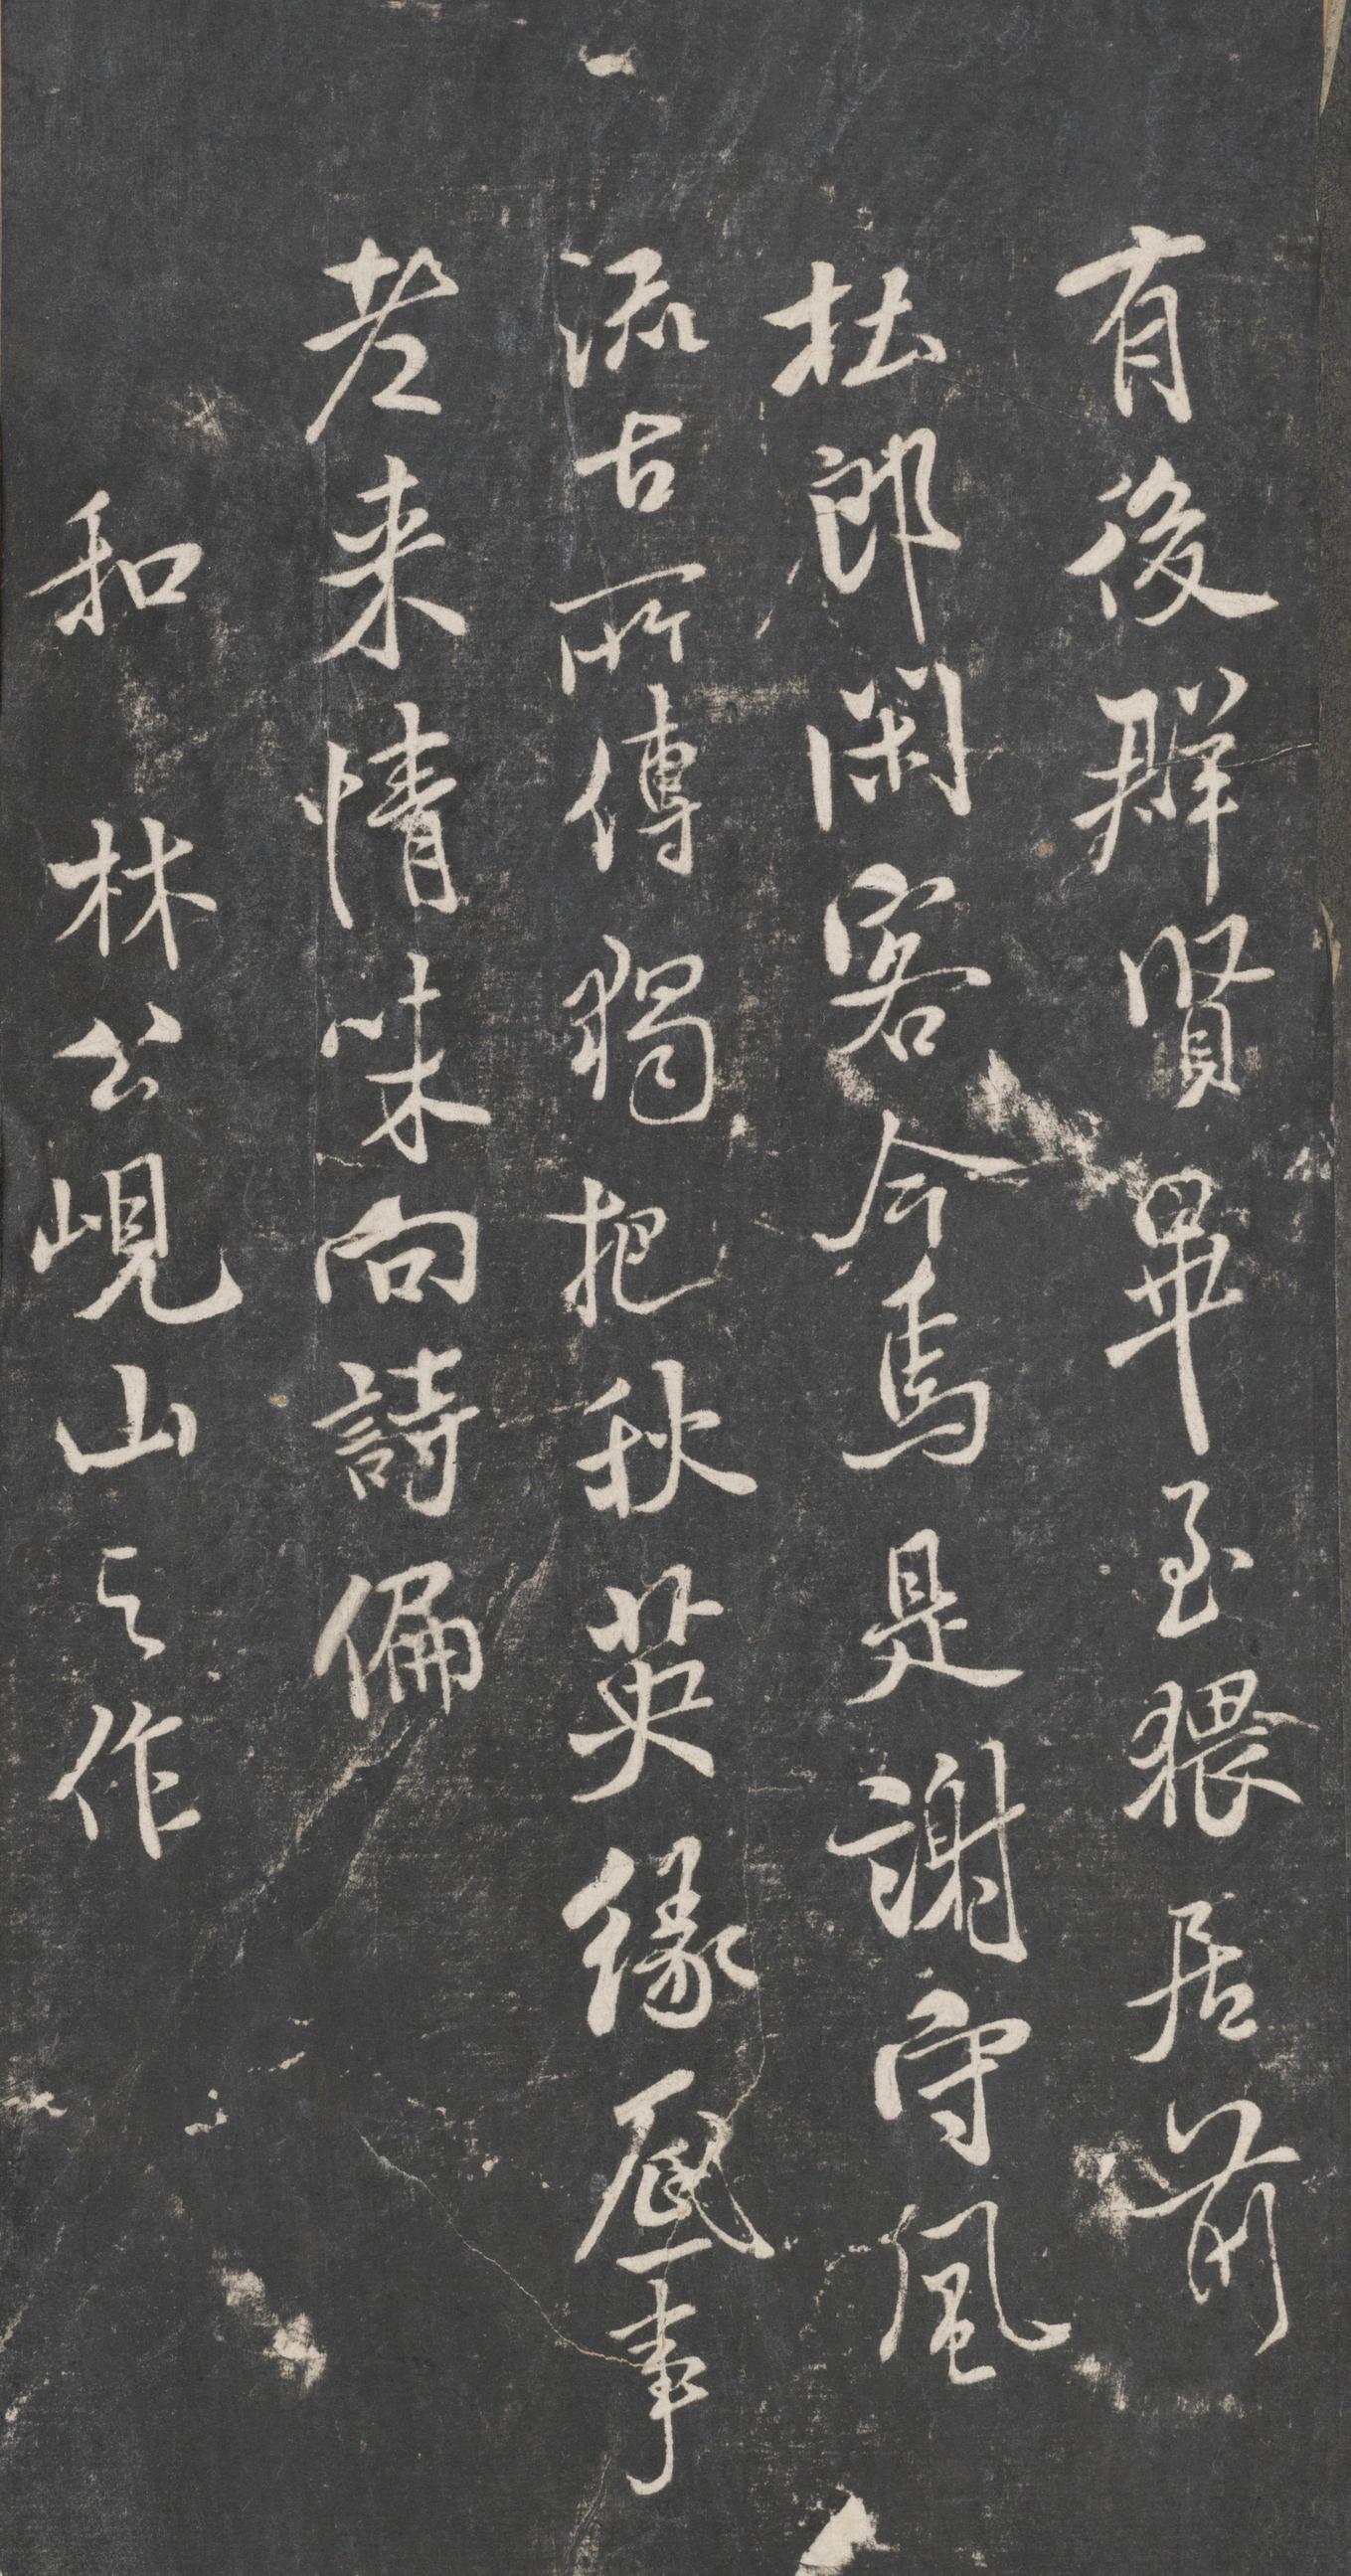 有後群賢畢至猥居前
杜郎閑客今焉是謝守風
流古所傳獨把秋英緣底事
老来情味向詩偏
和林公峴山之作